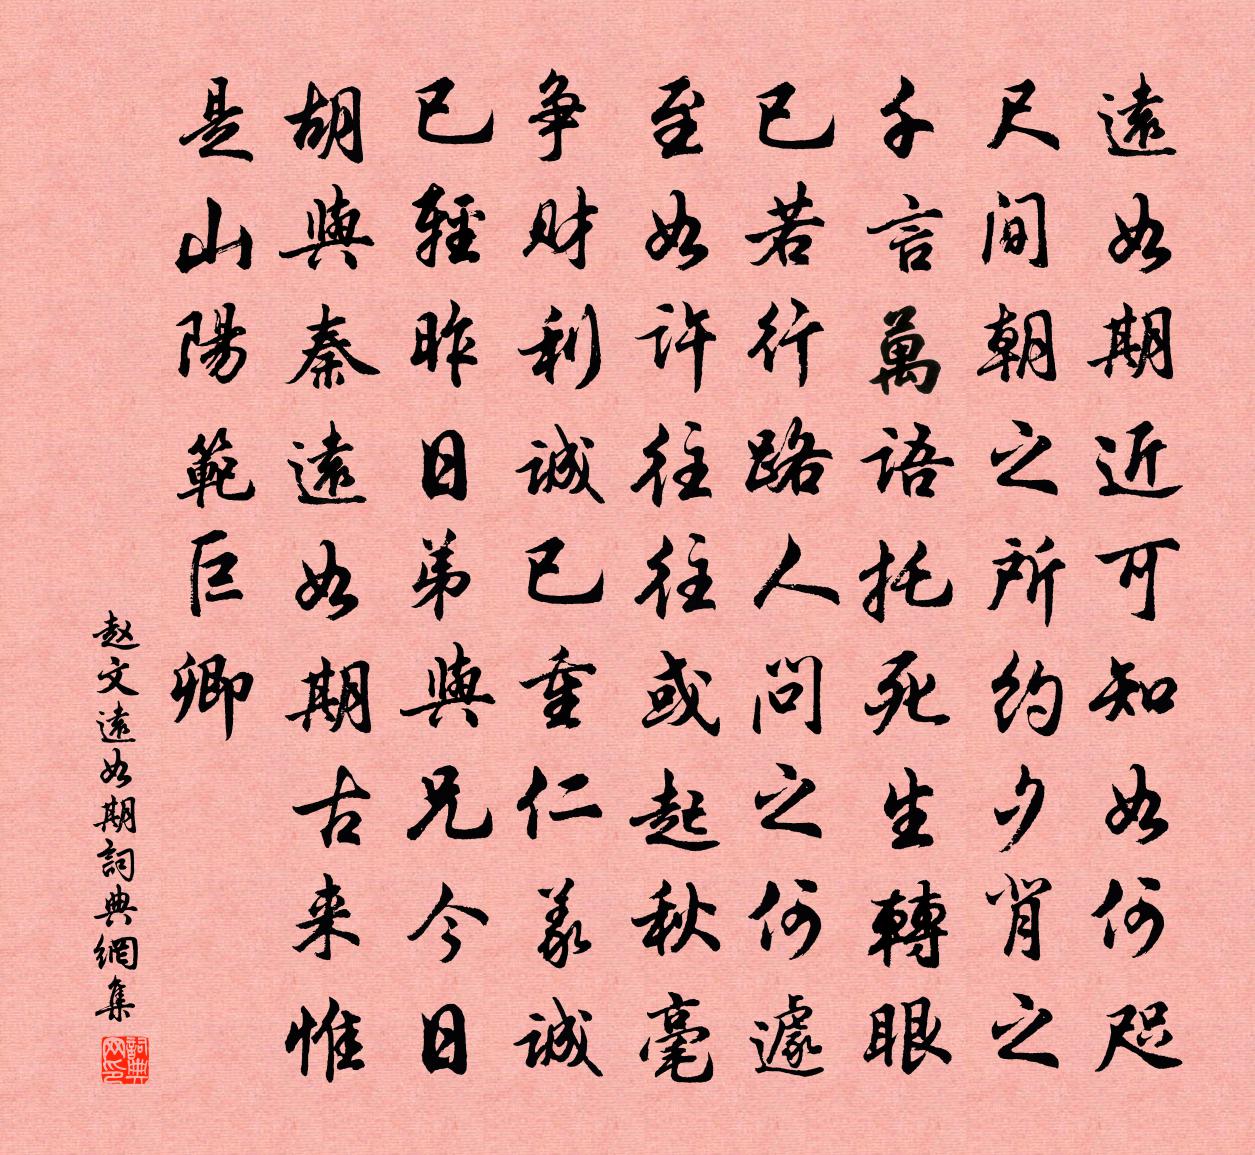 遠如期近可知如何咫
尺間朝之所約夕肖之
千言萬語托死生轉眼
已若行路人問之何遽
至如許往往或起秋毫
争财利誠已重仁義誠
已輕昨日弟與兄今日
胡與秦遠如期古来惟
是山陽範巨卿
赵文遠如期詞典網集
詞典网印